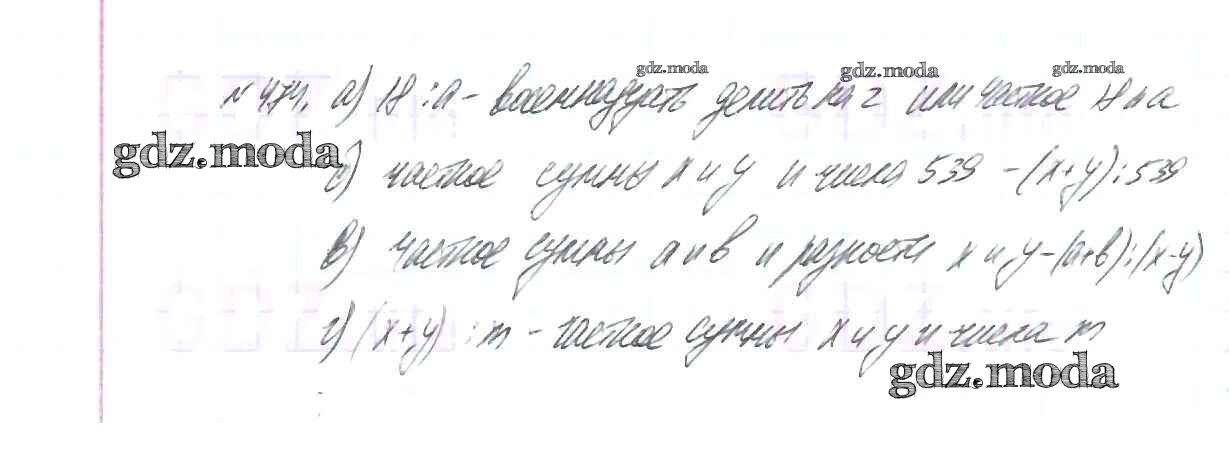 gdz.moda gdz.moda gdz.moda
№474. а) 18 : а - восемнадцать делить на 2 или частное 18 и а
gdz.moda
б) частное суммы х и у и числа 539 - (х+у) : 539
в) частное суммы а и в и разности х и у - (а+в) : (х-у)
г) (х+у) : m - частное суммы х и у и числа m
gdz.moda